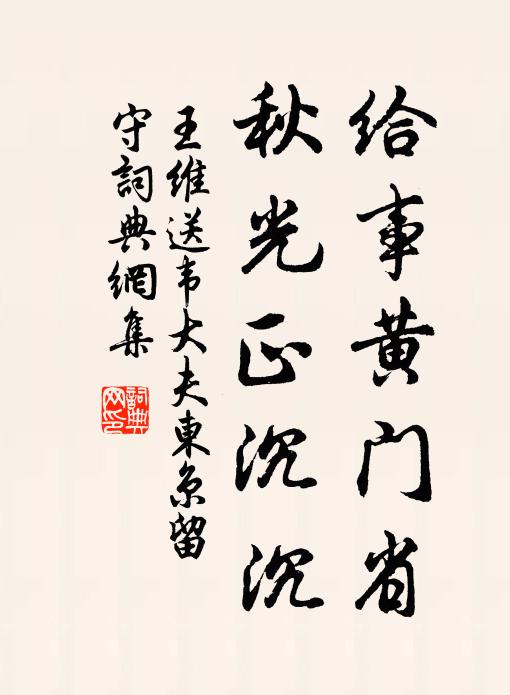 给事黄门省
秋光正沉沉
王维送韦大夫東京留
守詞典網集
詞典
网印